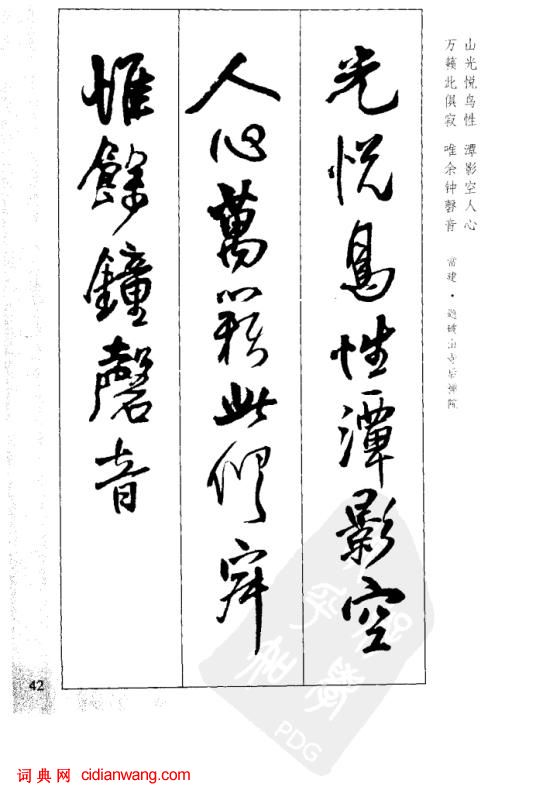 光悦鳥性潭影空
人心萬籟此俱寂
惟餘鐘磬音
山光悦鸟性 潭影空人心
万籁此俱寂 唯余钟磬音
常建·题破山寺后禅院
42
PDG
词典网 cidianwang.com